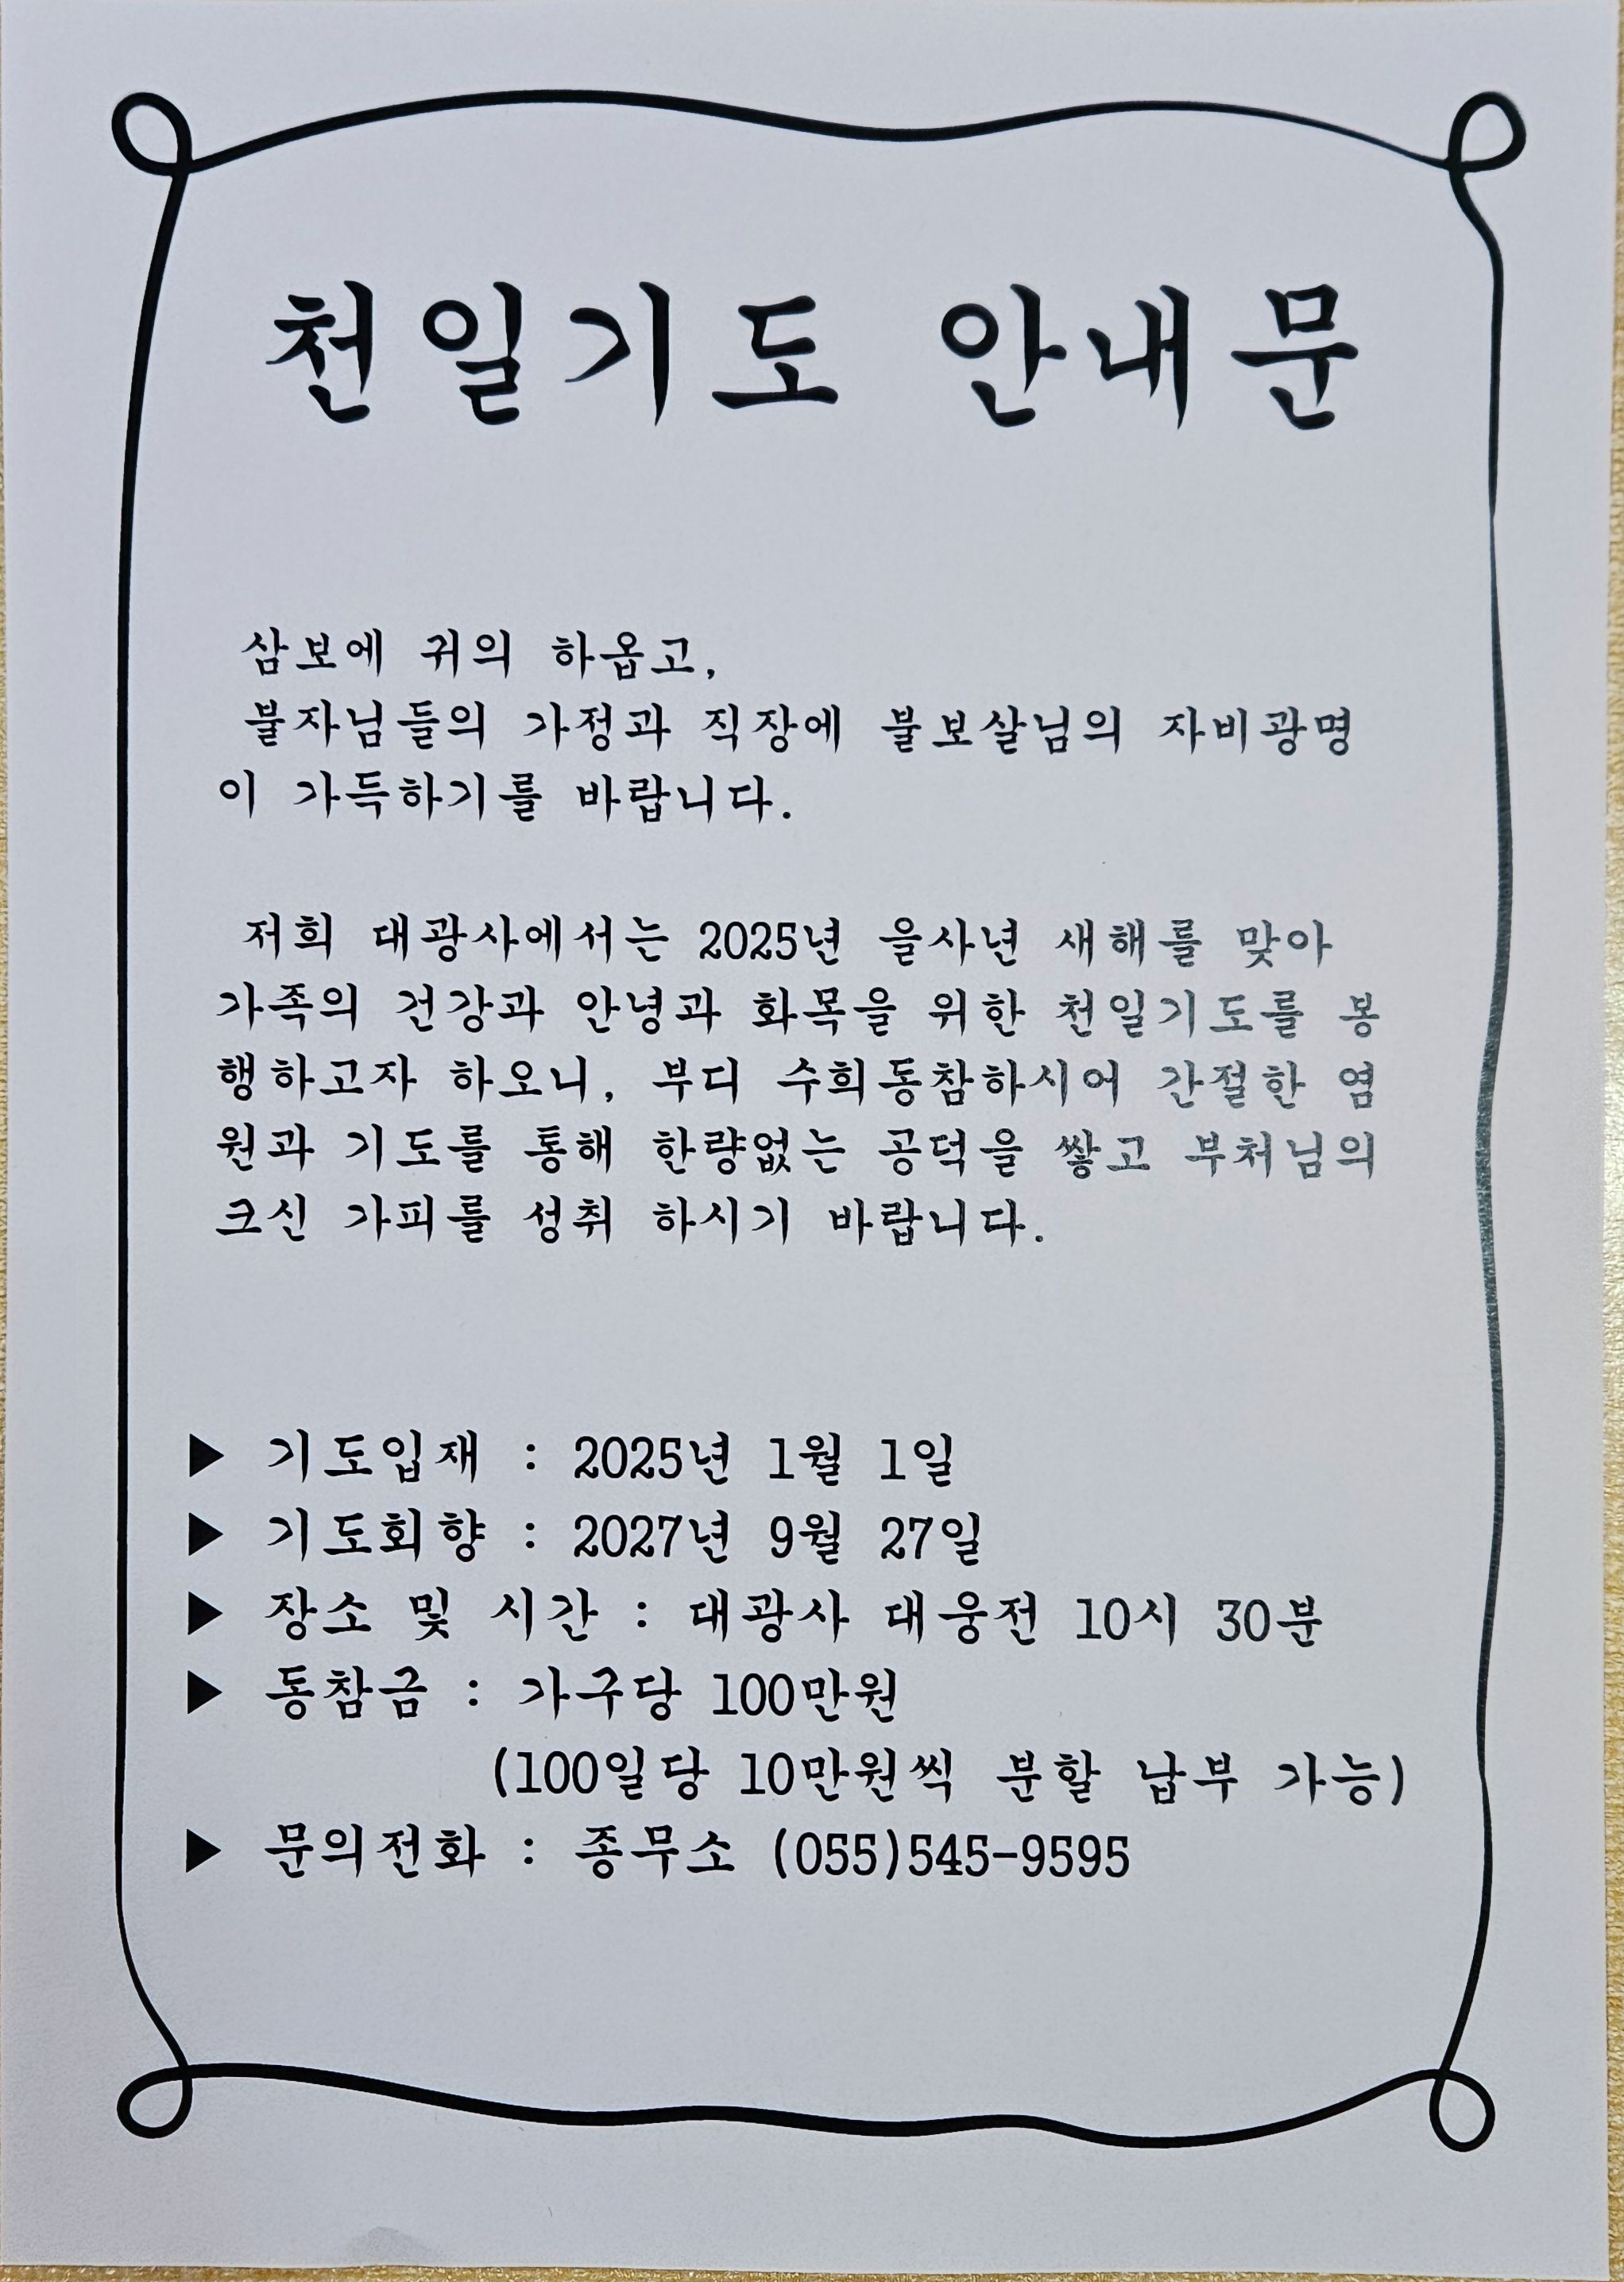 천일기도 안내문
삼보에 귀의 하옵고,
불자님들의 가정과 직장에 불보살님의 자비광명
이 가득하기를 바랍니다.
저희 대광사에서는 2025년 을사년 새해를 맞아
가족의 건강과 안녕과 화목을 위한 천일기도를 봉
행하고자 하오니, 부디 수희동참하시어 간절한 염
원과 기도를 통해 한량없는 공덕을 쌓고 부처님의
크신 가피를 성취 하시기 바랍니다.
▶ 기도입재 : 2025년 1월 1일
▶ 기도회향 : 2027년 9월 27일
▶ 장소 및 시간 : 대광사 대웅전 10시 30분
▶ 동참금 : 가구당 100만원
(100일당 10만원씩 분할 납부 가능)
▶ 문의전화 : 종무소 (055)545-9595